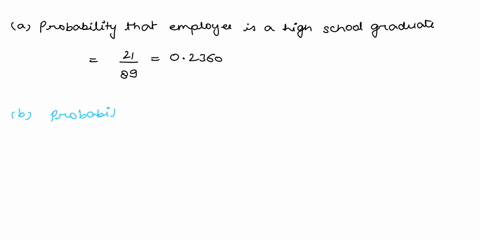 (a) Probability that employee is a high school graduate
= 21/89 = 0.2360
(b) Probabil